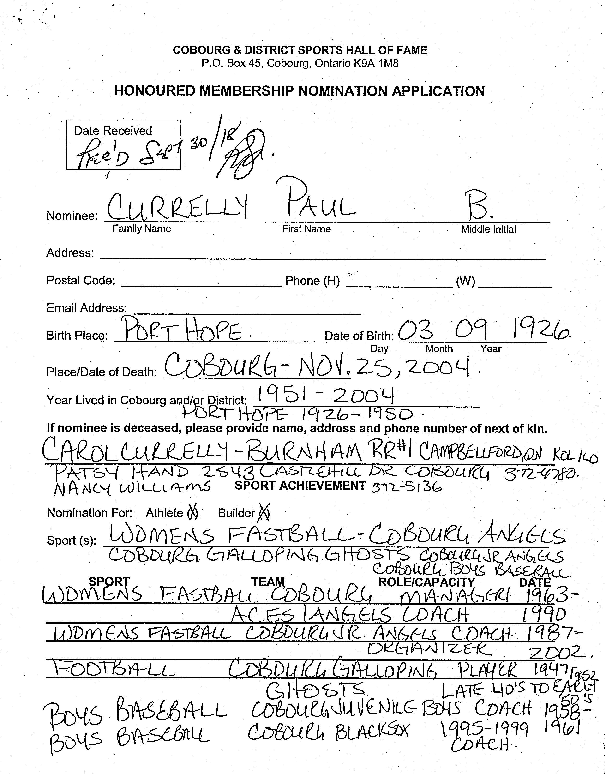 COBOURG & DISTRICT SPORTS HALL OF FAME
P.O. Box 45, Cobourg, Ontario K9A 1M8
HONOURED MEMBERSHIP NOMINATION APPLICATION
Date Received
Rec'D Sept 30/18
Nominee: CURRELLY PAUL B.
Family Name First Name Middle Initial
Address:
Postal Code: Phone (H) (W)
Email Address:
Birth Place: PORT HOPE Date of Birth: 03 09 1926
Day Month Year
Place/Date of Death: COBOURG - NOV. 25, 2004.
Year Lived in Cobourg and/or District: 1951 - 2004
PORT HOPE 1926-1950.
If nominee is deceased, please provide name, address and phone number of next of kin.
CAROL CURRELLY-BURNHAM RR#1 CAMPBELLFORD, ON K0L 1L0
PATSY HAND 2543 CASTLEHILL DR COBOURG 372-9280.
NANCY WILLIAMS SPORT ACHIEVEMENT 372-5136
Nomination For: Athlete (X) Builder (X)
Sport (s): WOMENS FASTBALL - COBOURG ANGELS
COBOURG GALLOPING GHOSTS COBOURG JR ANGELS
COBOURG BOYS BASEBALL
SPORT TEAM ROLE/CAPACITY DATE
WOMENS FASTBALL COBOURG MANAGER/ 1963-
ACES/ANGELS COACH 1990
WOMENS FASTBALL COBOURG JR. ANGELS COACH 1987-
ORGANIZER 2002.
FOOTBALL COBOURG GALLOPING PLAYER 1947
GHOSTS LATE 40'S TO EARLY 50'S
BOYS BASEBALL COBOURG JUVENILE BOYS COACH 1958-
BOYS BASEBALL COBOURG BLACKSOX 1995-1999 1961
COACH.